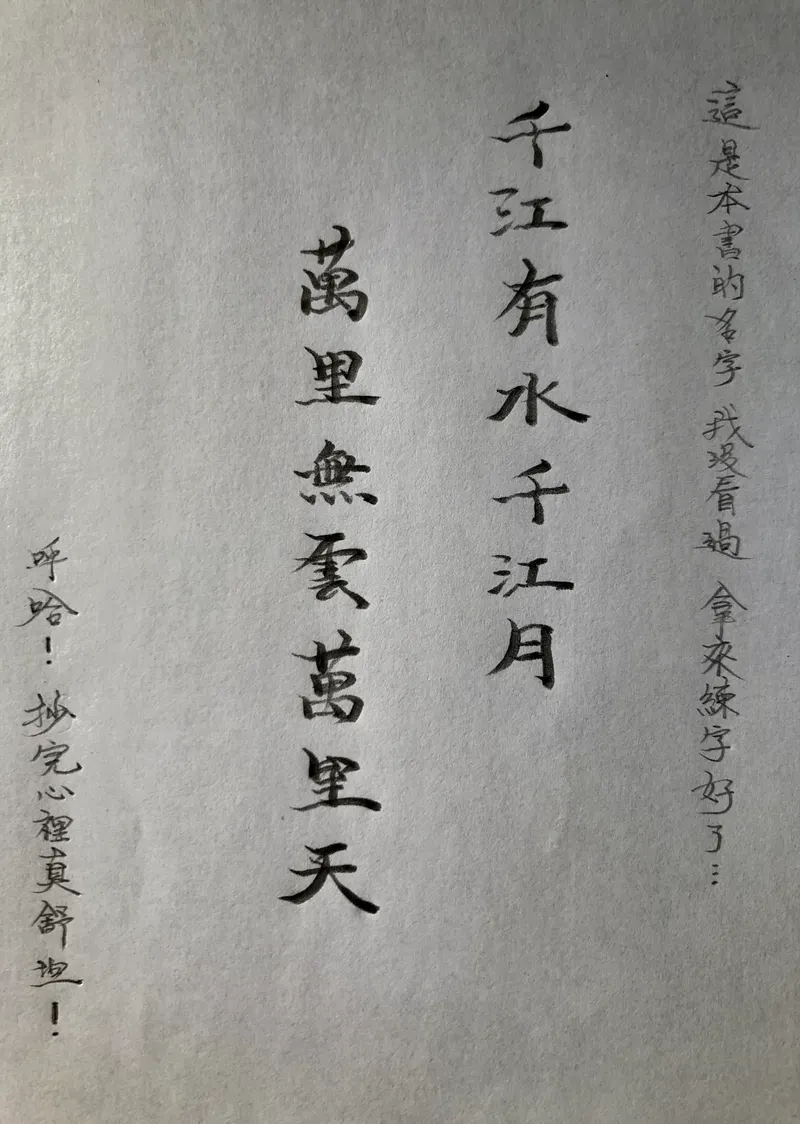 這是本書的名字 我沒看過 拿來練字好了…
千江有水千江月
萬里無雲萬里天
呼哈！ 抄完心裡真舒坦！